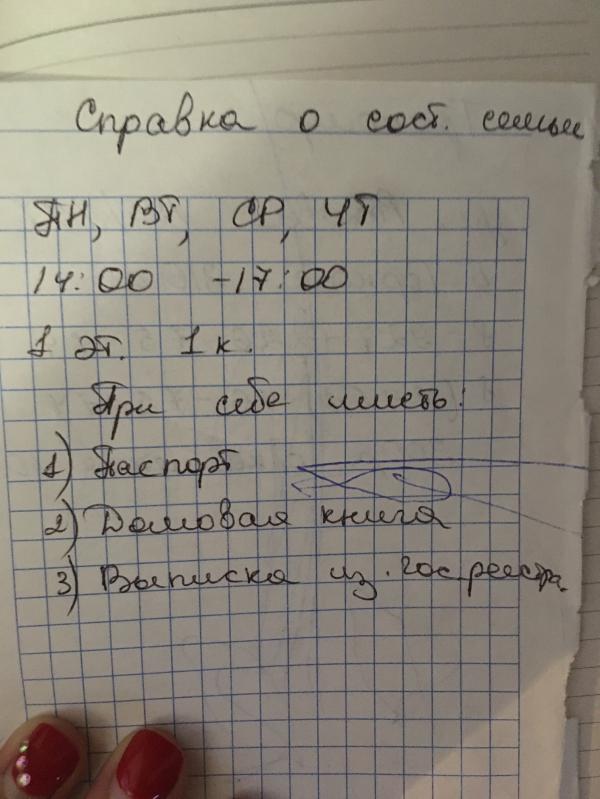 Справка о сост. семьи
ПН, ВТ, СР, ЧТ
14:00 -17:00
1 эт. 1 к.
При себе иметь:
1) Паспорт
2) Домовая книга
3) Выписка из гос.реестра